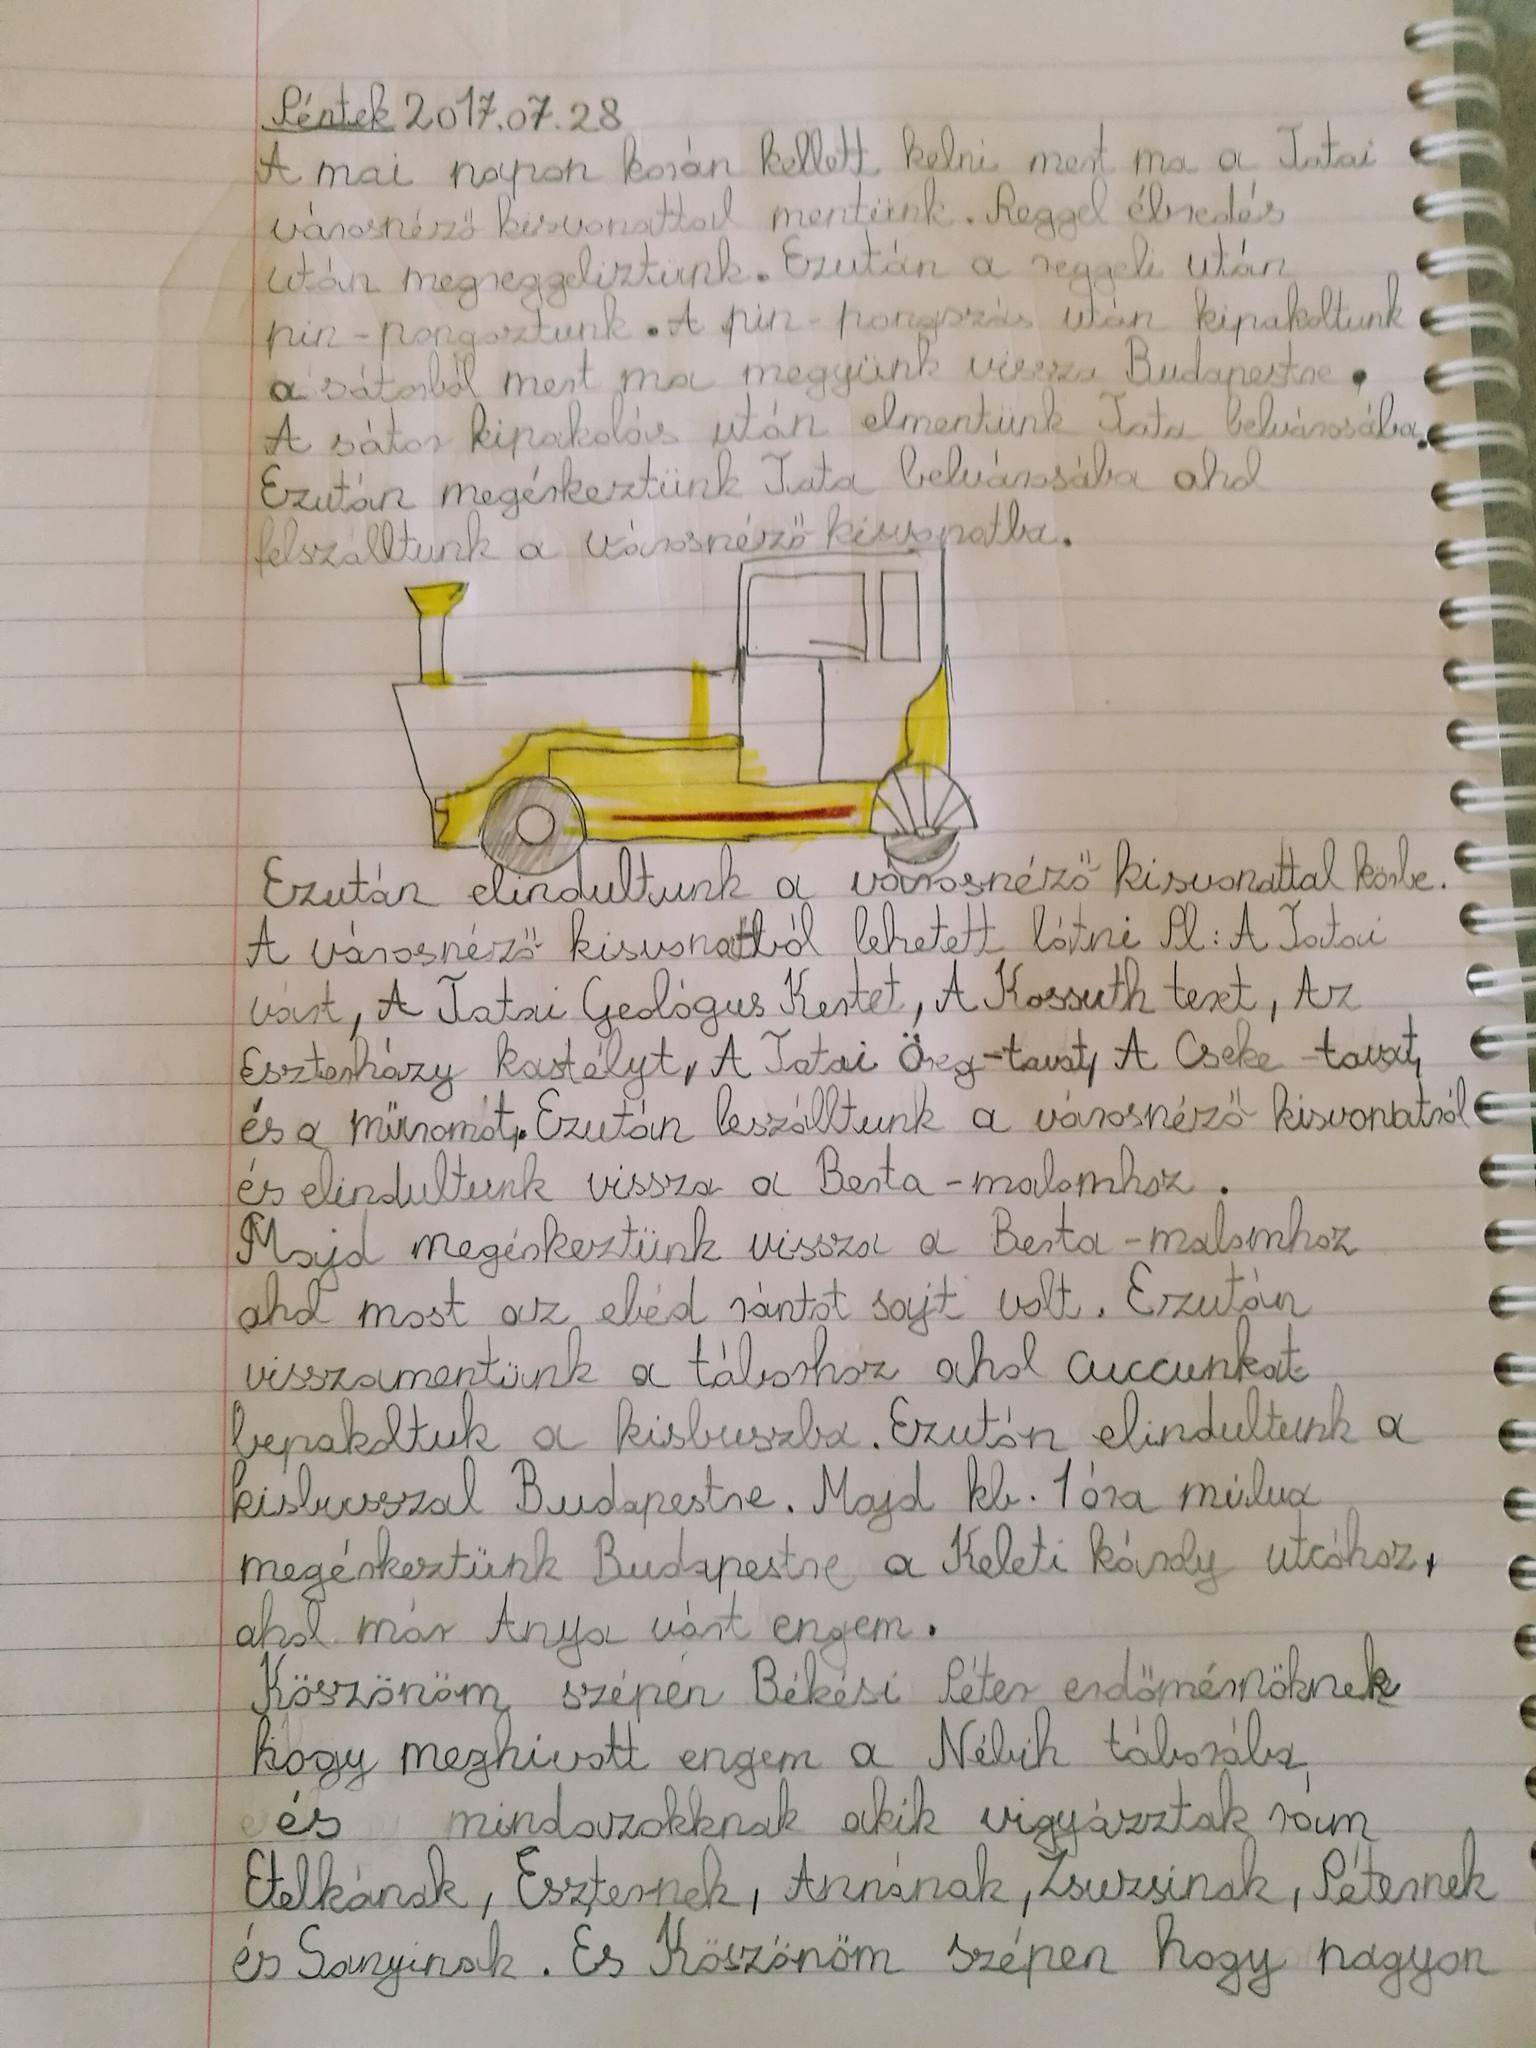 Péntek 2017.07.28
A mai napon korán kellett kelni mert ma a Tatai
városnéző kisvonattal mentünk. Reggel ébredés
után megreggeliztünk. Ezután a reggeli után
pin-pongoztunk. A pin-pongozás után kipakoltunk
a sátorból mert ma megyünk vissza Budapestre.
A sátor kipakolás után elmentünk Tata belvárosába.
Ezután megérkeztünk Tata belvárosába ahol
felszálltunk a városnéző kisvonatba.
Ezután elindultunk a városnéző kisvonattal körbe.
A városnéző kisvonatból lehetett látni Pl: A Tatai
várt, A Tatai Geológus Kertet, A Kossuth teret, Az
Eszterházy kastélyt, A Tatai Öreg-tavat, A Cseke-tavat,
és a műromot. Ezután leszálltunk a városnéző kisvonatról
és elindultunk vissza a Berta-malomhoz.
Majd megérkeztünk vissza a Berta-malomhoz
ahol most az ebéd rántot sajt volt. Ezután
visszamentünk a táborhoz ahol cuccunkat
bepakoltuk a kisbuszba. Ezután elindultunk a
kisbusszal Budapestre. Majd kb. 1 óra múlva
megérkeztünk Budapestre a Keleti károly utcához,
ahol már Anya várt engem.
Köszönöm szépen Békési Péter erdőmérnöknek
hogy meghivott engem a Nébih táborába,
és mindazokknak akik vigyázztak rám
Etelkának, Eszternek, Annának, Zsuzsinak, Péternek
és Sanyinak. És Köszönöm szépen hogy nagyon